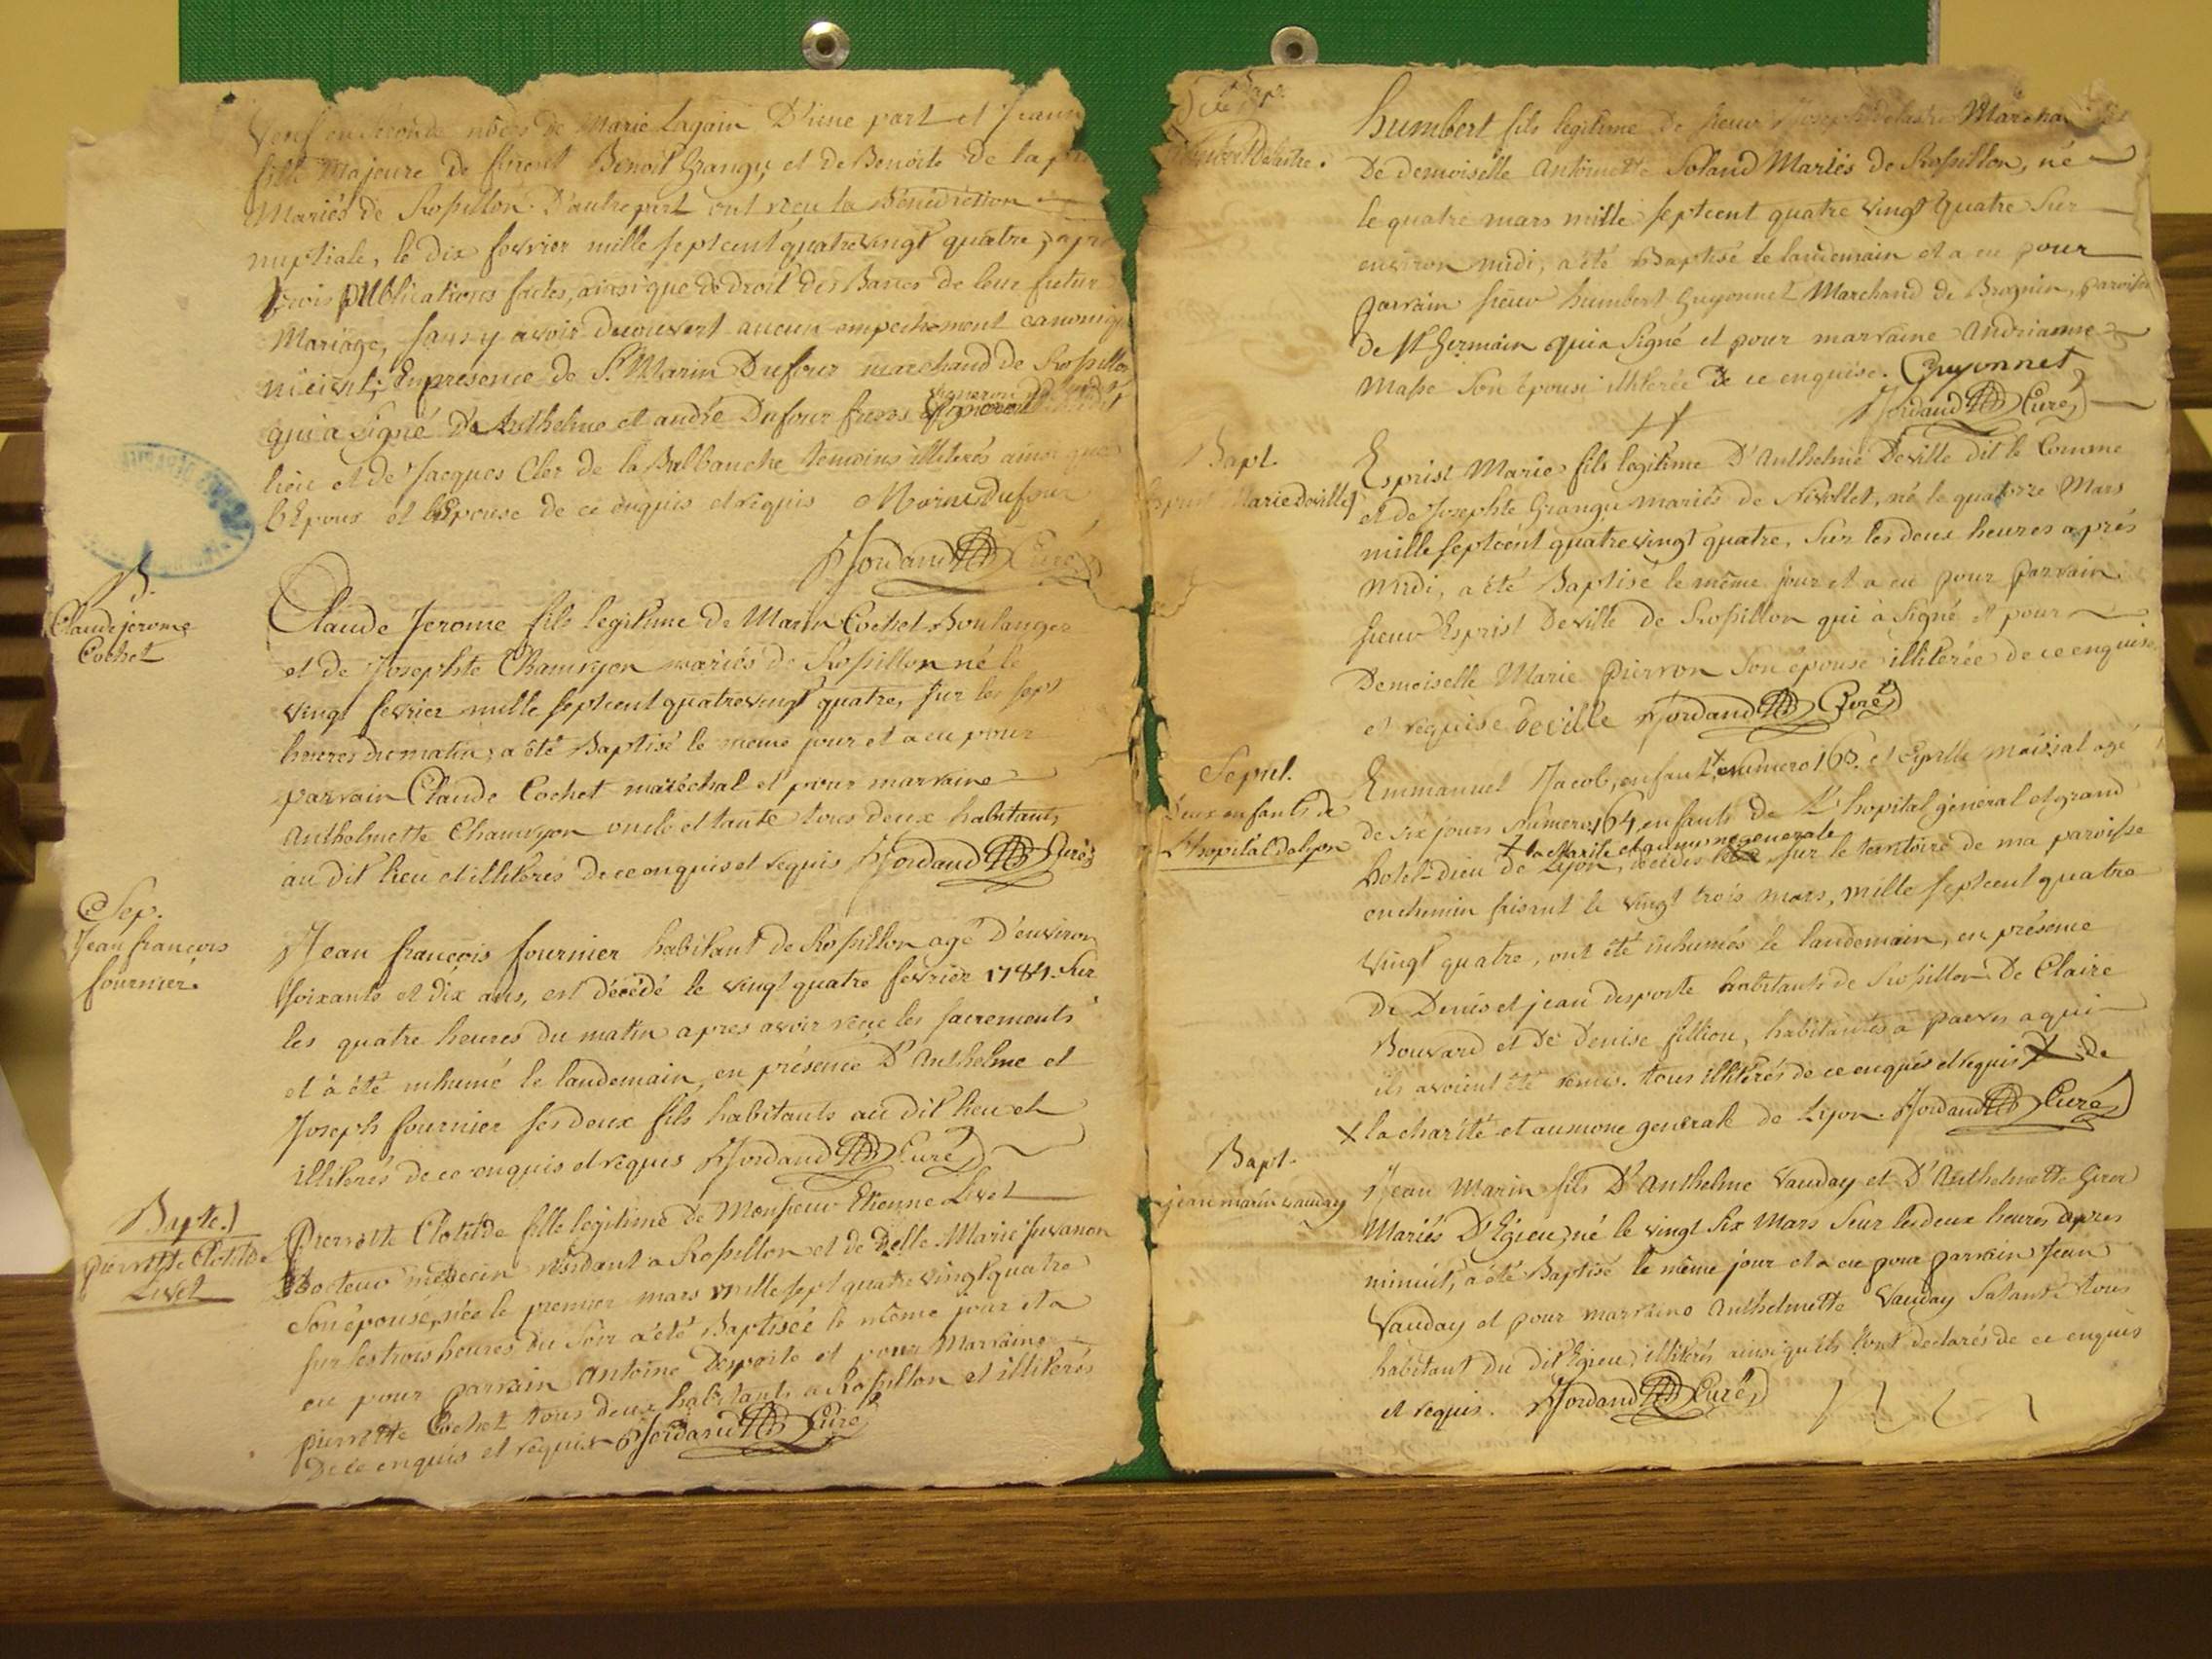 Veuf en seconde noces de Marie Lagain D'une part et Jeann
fille Majeure de furent Benoit Grangy et de Benoite de la
Mariés de Rossillon D'autre part ont reçu la Bénédiction
nuptiale, le dix fevrier mille sept cent quatre vingt quatre, apr
trois publications faites, ainsi que de droit des Bancs de leur futur
Mariage, sans y avoir decouvert aucun empechement canoniq
ni civil; En presence de Sr. Marin Dufour marchand de Rossillon
qui a signé D'Anthelme et andré Dufour freres vigneron
lieu et de Jacques Cler de la Balbanche temoins illiterés ainsi que
l'Epoux et l'Epouse de ce enquis et requis Marin Dufour
Jordand Curé
B.
Claude jerome
Cochet
Claude Jerome fils legitime de Marin Cochet Boulanger
et de Josephte Chamryon mariés de Rossillon né le
vingt fevrier mille sept cent quatre vingt quatre, sur les sept
heures du matin, a été Baptisé le meme jour et a eu pour
parrain Claude Cochet maréchal et pour marraine
Anthelmette Chamryon oncle et tante tous deux habitants
au dit lieu et illiterés de ce enquis et requis Jordand Curé
Sep.
Jean francois
fournier.
Jean françois fournier habitant de Rossillon agé d'environ
soixante et dix ans, est décédé le vingt quatre fevrier 1784. Sur
les quatre heures du matin apres avoir reçu les sacrements
et a été inhumé le laudemain, en présence D'Anthelme et
Joseph fournier ses deux fils habitants au dit lieu et
illiterés de ce enquis et requis Jordand Curé
Bapte.
pierrette Clotilde
Livet
Pierrette Clotilde fille legitime de Monsieur Etienne Livet
Docteur médecin résidant a Rossillon et de Delle Marie Juvanon
Son épouse, née le premier mars mille sept quatre vingt quatre
sur les trois heures du soir a été Baptisée le même jour et a
eu pour parrain Antoine Desporte et pour Marraine
pierrette Cochet tous deux habitants a Rossillon et illiterés
De ce enquis et requis Jordand Curé
Bap.
humbert fils legitime de sieur Joseph Delastre Marcha
De demoiselle Antoinette Soland Mariés de Rossillon, né
le quatre mars mille sept cent quatre vingt quatre sur
environ midi, a été Baptisé le laudemain et a eu pour
parrain sieur humbert Guyonnet Marchand de Brognin, paroisse
de St Germain qui a signé et pour marraine Andrianne
Masse Son épouse illiterée de ce enquise. Guyonnet
Jordand Curé
Bapt.
Esprit Marie Deville
Esprist Marie fils legitime D'Anthelme Deville dit le Comme
et de Josephte Grangy mariés de Nivollet, né le quatorze Mars
mille sept cent quatre vingt quatre, sur les deux heures après
midi, a été Baptisé le même jour et a eu pour parrain
sieur Esprist Deville de Rossillon qui a signé et pour
Demoiselle Marie Pierron Son épouse illiterée de ce enquise
et requise Deville Jordand Curé
Sepul.
Deux enfants de
L'hopital de lyon
Emmanuel Jacob, enfant numero 163. et Cyrille maissat agé
de six jours Numero 164, enfants de L'hopital général et grand
X la charité et aumonegenerale
hotel-dieu de Lyon, décédés sur le territoire de ma paroisse
en chemin faisant le vingt trois mars, mille sept cent quatre
vingt quatre, ont été inhumés le laudemain, en présence
De Denis et jean desporte habitants de Rossillon De Claire
Bouvard et De Denise fillion, habitantes a parves a qui
ils avoient été remis. tous illiterés de ce enquis et requis X de
X la charité et aumone generale de Lyon. Jordand Curé
Bapt.
jean marin vauday
Jean Marin fils D'Anthelme Vauday et D'Anthelmette Girer
Mariés D'Egieu, né le vingt six Mars sur les deux heures apres
minuit, a été Baptisé le même jour et a eu pour parrain Jean
Vauday et pour marraine Anthelmette Vauday Sa tante tous
habitant du dit Egieu, illiterés ainsi qu'ils l'ont declarés de ce enquis
et requis. Jordand Curé